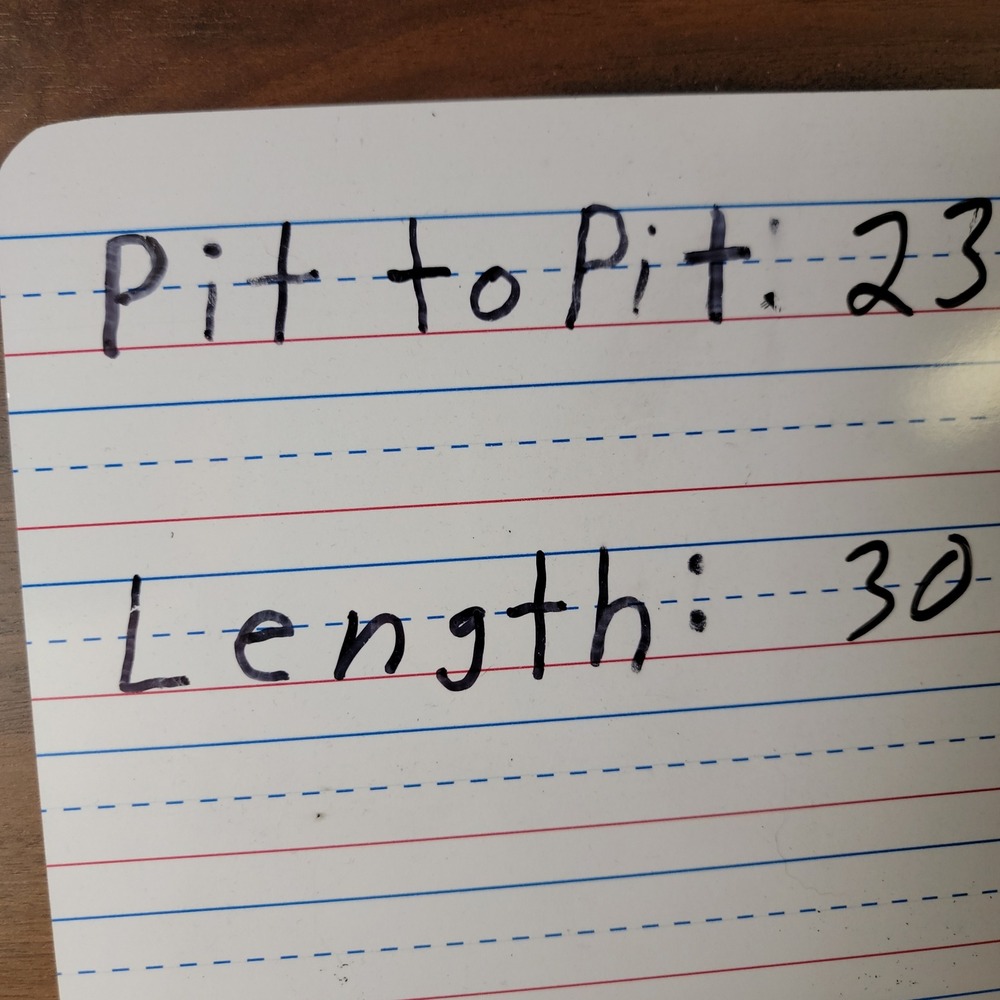 Pit to Pit: 23
Length: 30